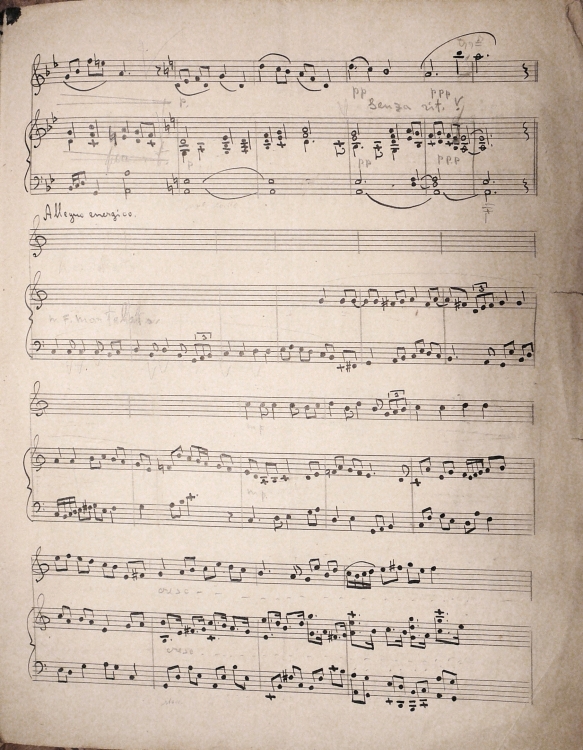 p
pp
ppp
Senza rit.
p
pp
ppp
Allegro energico.
3
3
3
mp
mp
cresc
cresc